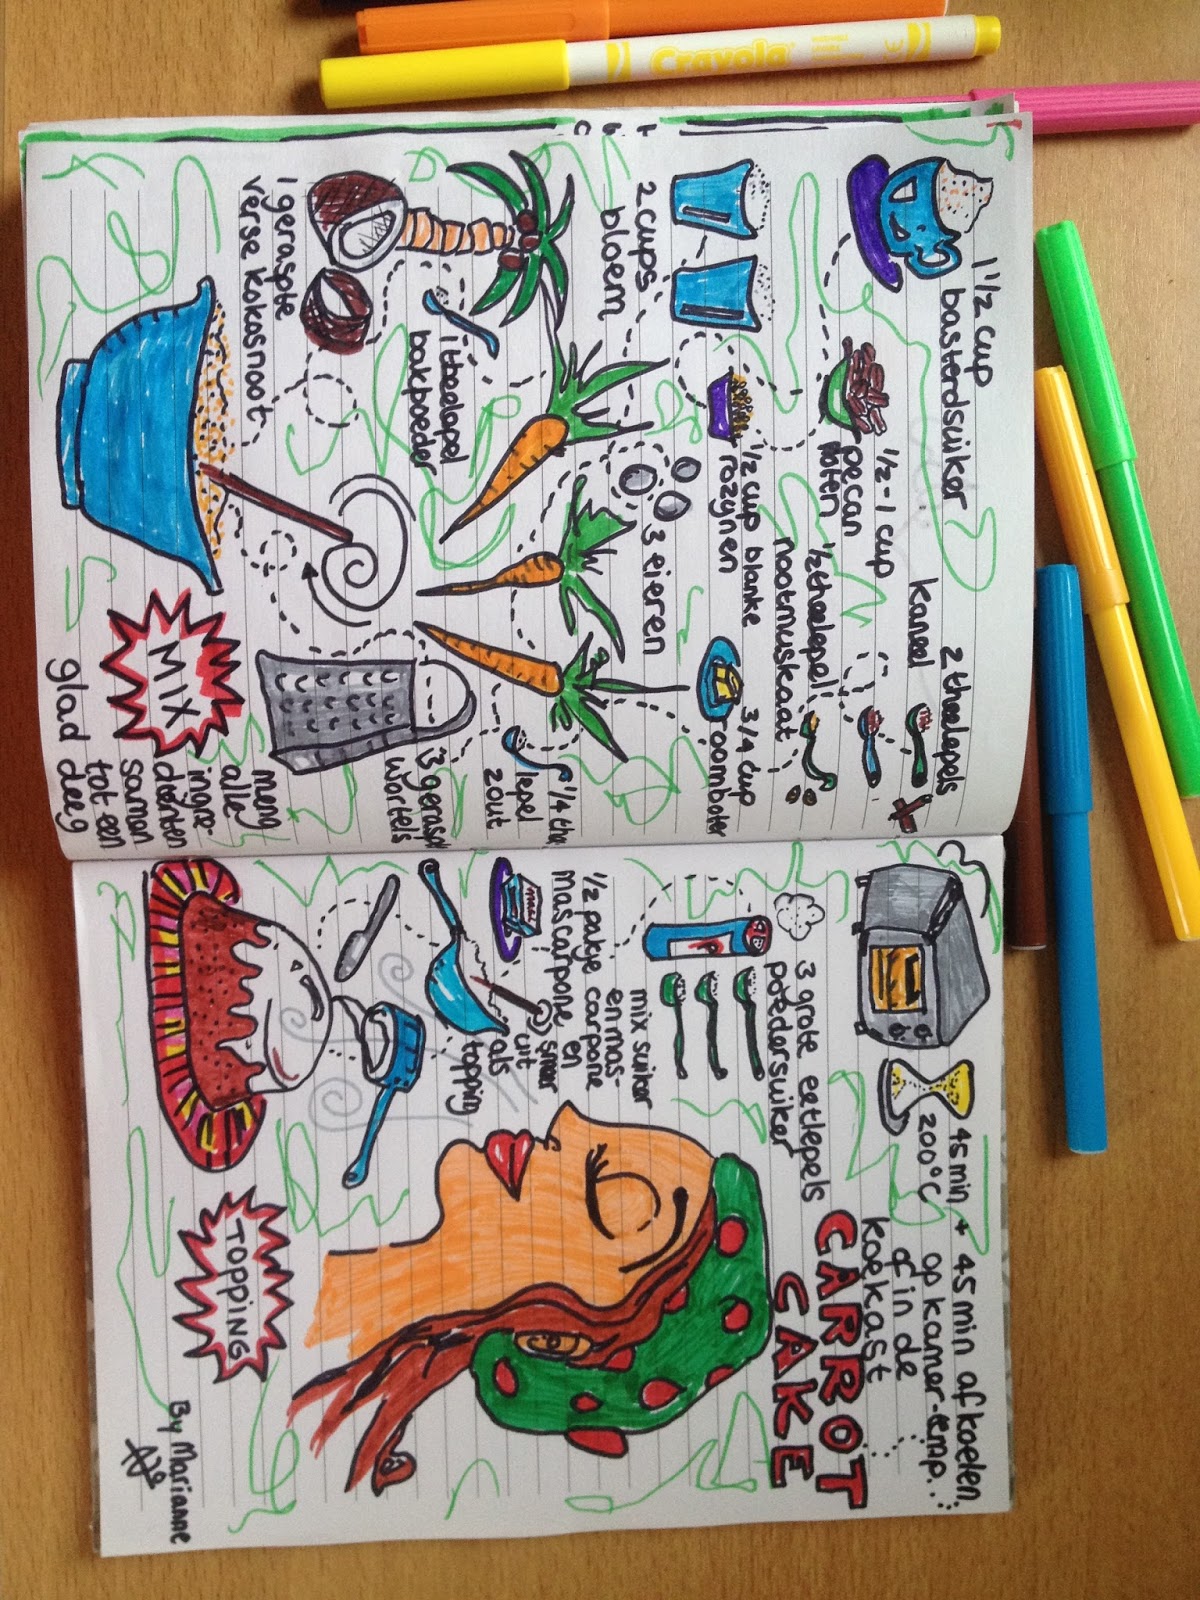 1 1/2 cup
basterdsuiker
2 theelepels
kaneel
1/2 - 1 cup
pecan
noten
1/2 theelepel
nootmuskaat
2 cups
bloem
1/2 cup blanke
rozijnen
3/4 cup
roomboter
3 eieren
1 theelepel
bakpoeder
1/4 thee
lepel
zout
1 geraspte
verse kokosnoot
3 geraspte
wortels
MIX
meng
alle
ingre-
diënten
samen
tot een
glad deeg
45 min + 45 min afkoelen
200°C
op kamer-temp.
of in de
koelkast
CARROT
CAKE
3 grote eetlepels
poedersuiker
mix suiker
en mas-
1/2 pakje carpone
mascarpone en
smeer
uit
als
topping
TOPPING
By Marianne
Crayola